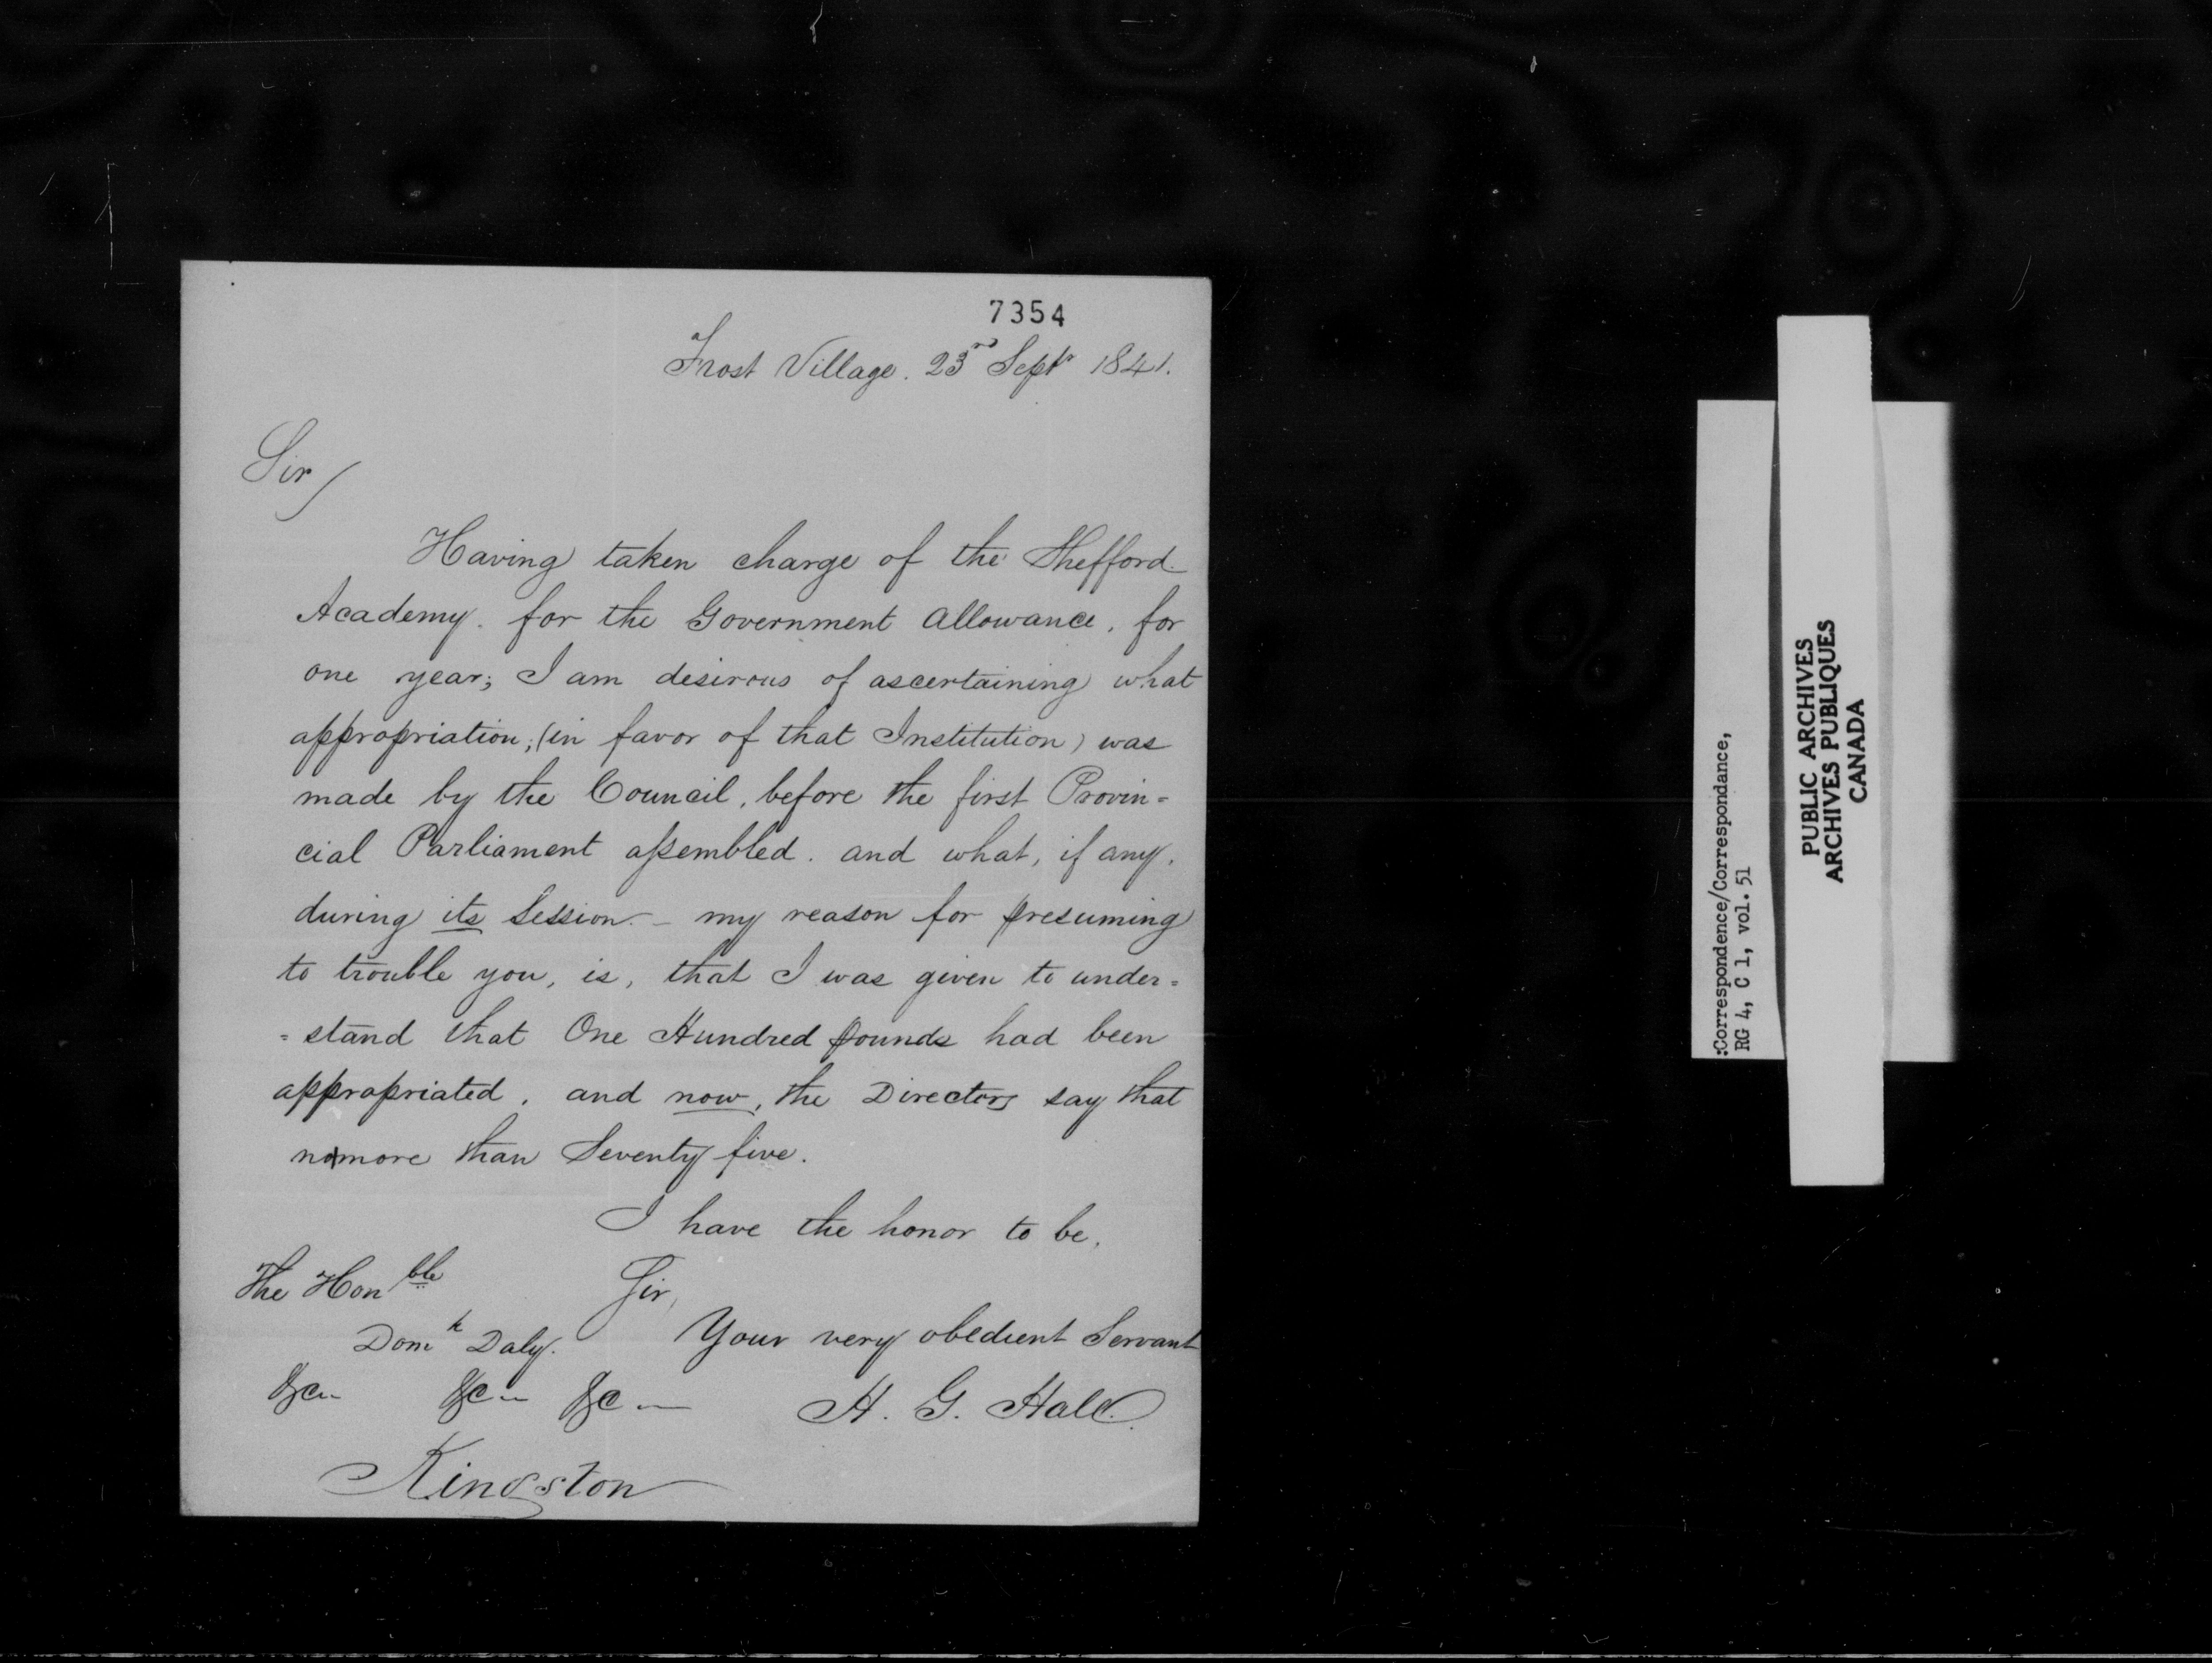 7354
Frost Village. 23rd Septr 1841.
Sir/
Having taken charge of the Shefford
Academy. for the Government allowance, for
one year; I am desirous of ascertaining what
appropriation, (in favor of that Institution) was
made by the Council, before the first Provin=
cial Parliament assembled. and what, if any,
during its Session. - my reason for presuming
to trouble you, is, that I was given to under=
=stand that One Hundred pounds had been
appropriated, and now, the Directors say that
no more than Seventy five.
I have the honor to be,
Sir,
Your very obedient Servant
H. G. Hall.
The Honble
Domk Daly.
&c &c &c
Kingston
:Correspondence/Correspondance,
RG 4, C 1, vol. 51
PUBLIC ARCHIVES
ARCHIVES PUBLIQUES
CANADA